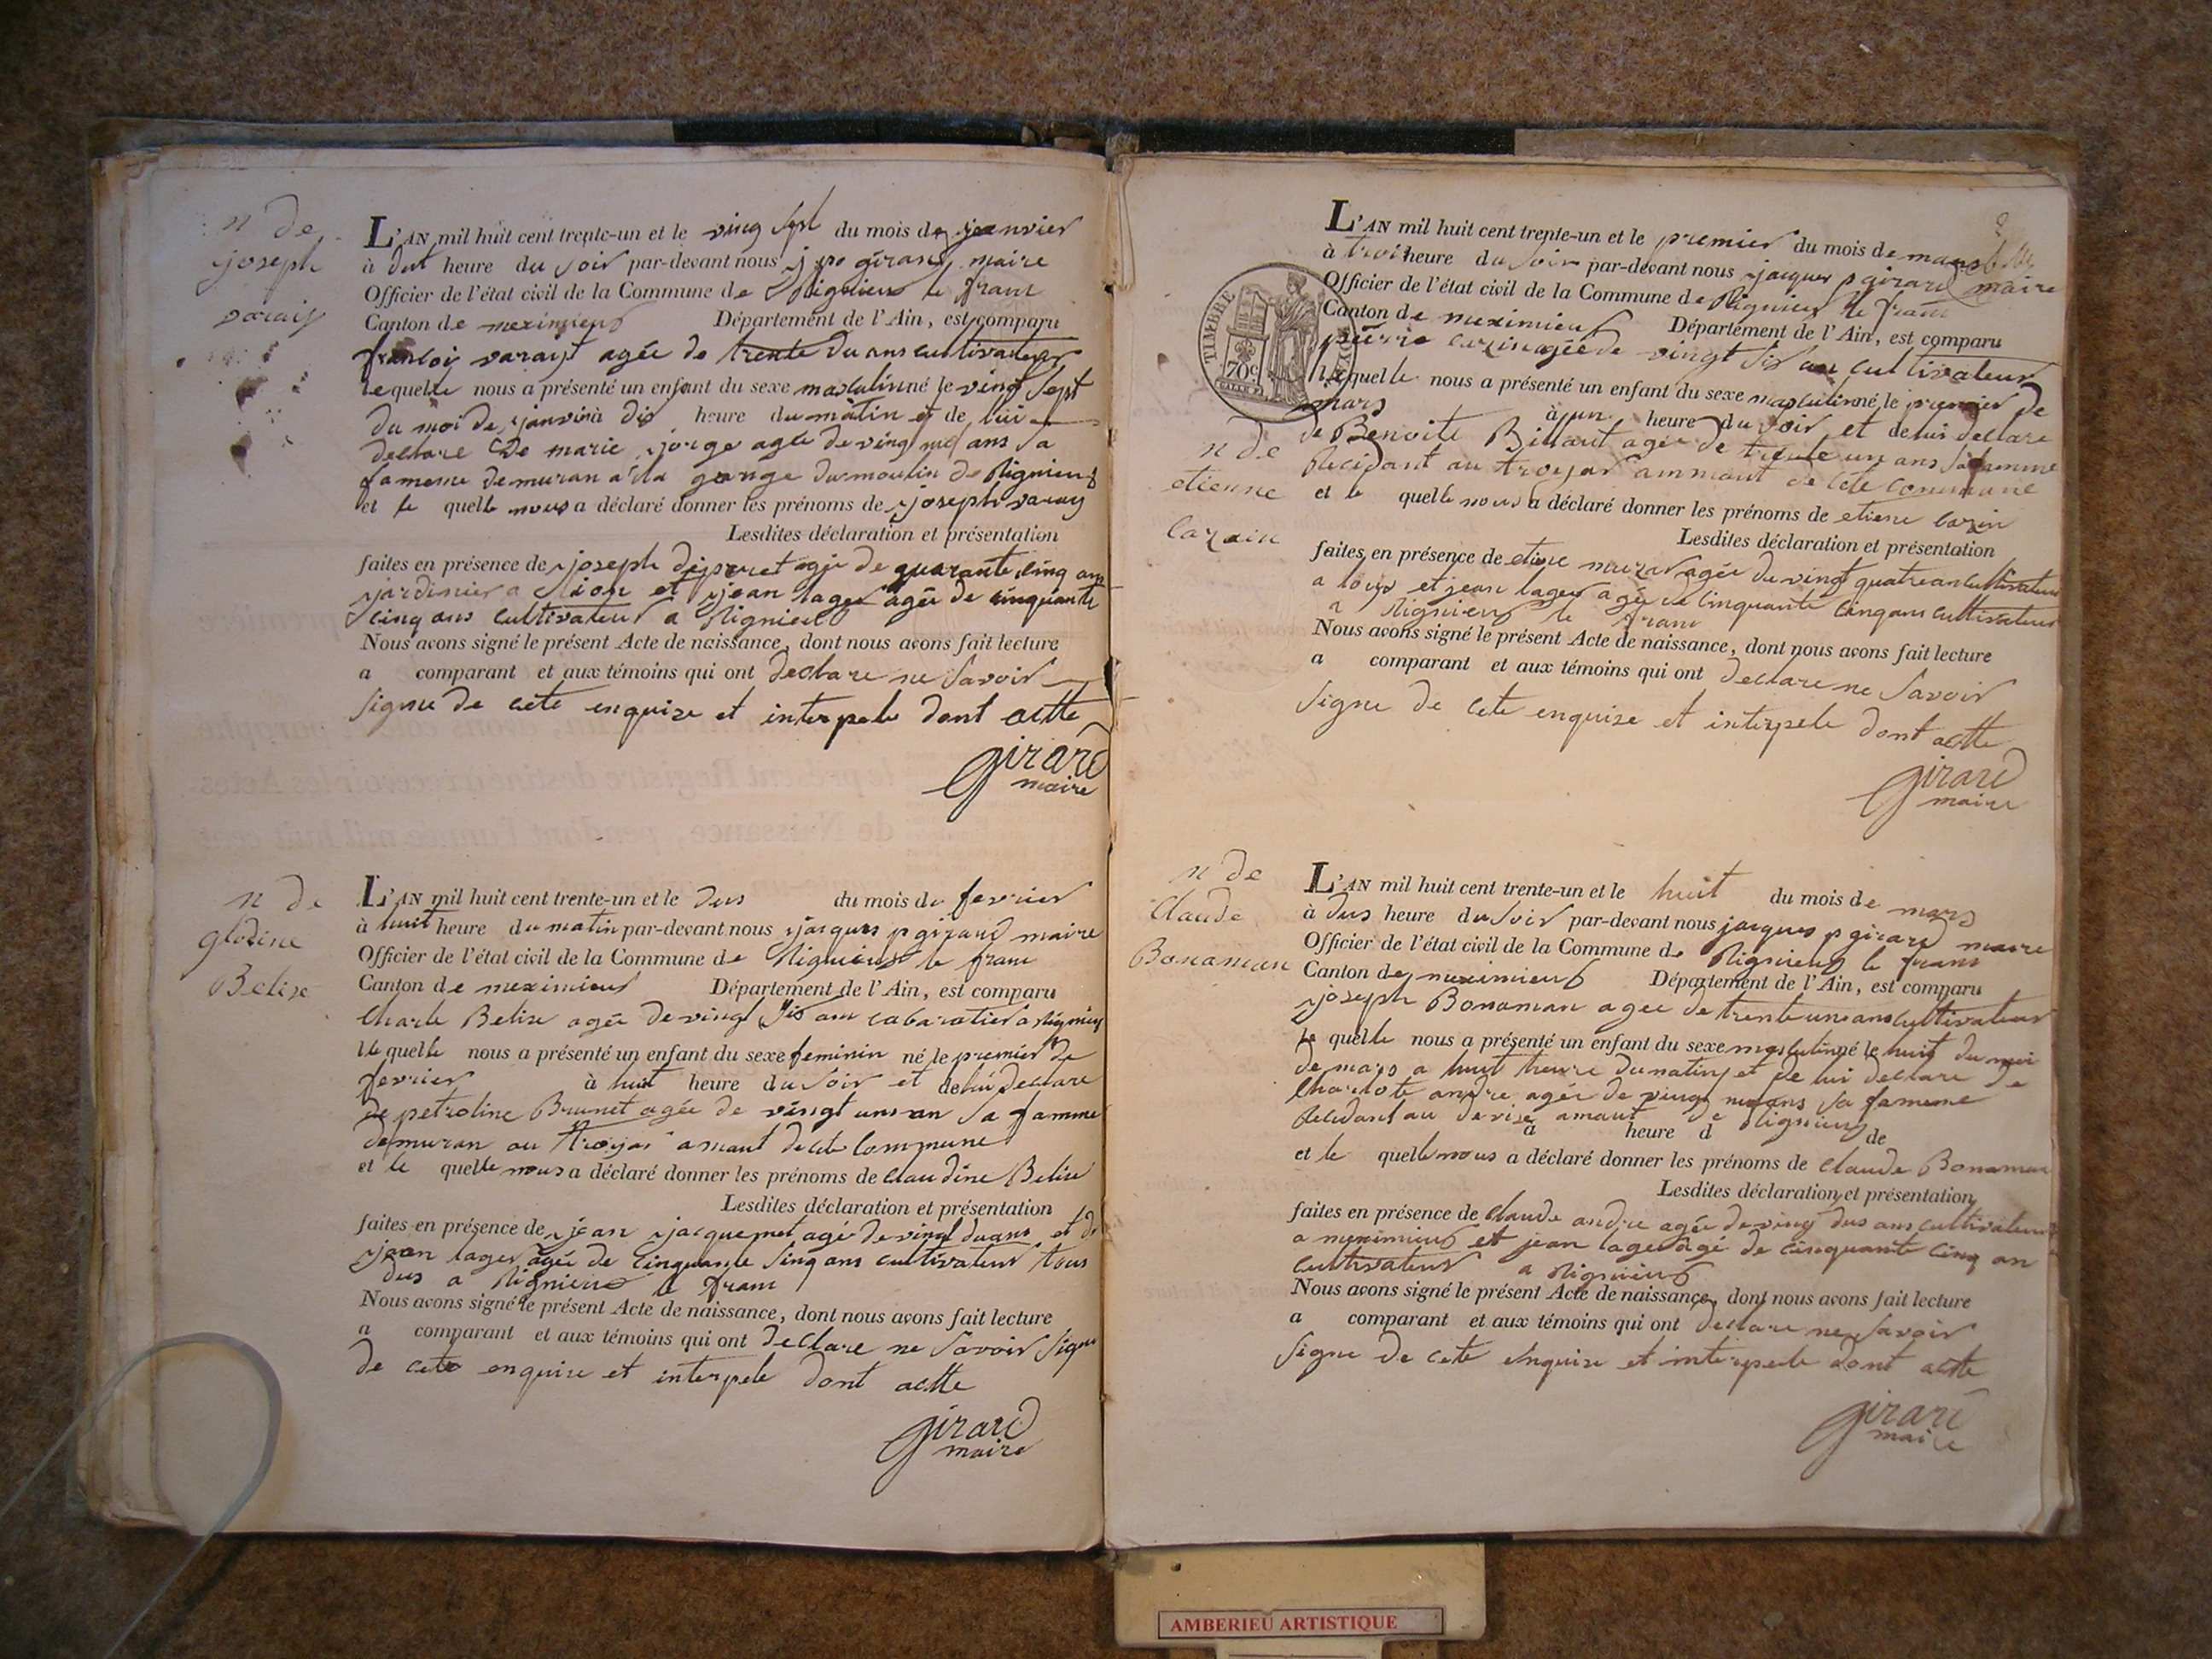 n de
joseph
varaij
L'AN mil huit cent trente-un et le ving sept du mois de janvier
à dus heure du soir par-devant nous j pe girard maire
Officier de l'état civil de la Commune de Rignieus le franc
Canton de meximieus Département de l'Ain, est comparu
francois varayt agée de trente du ans cultivateur
lequelle nous a présenté un enfant du sexe masculin né le vingt sept
du moi de janvir à dis heure du matin et de lui
declare De marie jorge agée de ving neuf ans sa
famme demuran a la grange du moulin de Rignieus
et le quelle nous a déclaré donner les prénoms de joseph varay
Lesdites déclaration et présentation
faites en présence de joseph agé de quarante cinq ans
jardinier a lion et jean lager agée de cinquante
cinq ans cultivateur a Rignieus
Nous avons signé le présent Acte de naissance, dont nous avons fait lecture
a comparant et aux témoins qui ont declare ne savoir
signe de cete enquize et interpele dont actte
girard
maire
n de
glodine
Belise
L'AN mil huit cent trente-un et le dus du mois de fevrier
à huit heure du matin par-devant nous jacques p girard maire
Officier de l'état civil de la Commune de Rignieus le franc
Canton de meximieus Département de l'Ain, est comparu
Charle Belise agée de vingt sis ans cabaratier a Rignieus
lequelle nous a présenté un enfant du sexe feminin né le premier de
fevrier à huit heure du soir et de lui declare
de petroline Brunet agée de vingt un an sa famme
demuran au troyar amaut de cete commune
et le quelle nous a déclaré donner les prénoms de claudine Belise
Lesdites déclaration et présentation
faites en présence de jean jacquemet agé de vingt du ans et de
jean lager agée de cinquante sing ans cultivateur tous
dus a Rignieus le franc
Nous avons signé le présent Acte de naissance, dont nous avons fait lecture
a comparant et aux témoins qui ont declare ne savoir signe
de cete enquize et interpele dont actte
girard
maire
L'AN mil huit cent trente-un et le premier du mois de mars
à trois heure du soir par-devant nous jacques p girard maire
Officier de l'état civil de la Commune de Rignieus le franc
Canton de meximieus Département de l'Ain, est comparu
TIMBRE
70c
pierre cazin agée de vingt sis ans cultivateur
lequelle nous a présenté un enfant du sexe masculin né le premier de
mars à un heure du soir et de lui declare
n de
etienne
cazain
de Benoite Billaut agée de trente un ans sa famme
Recidant au troyar ammaut de cete commune
et le quelle nous a déclaré donner les prénoms de etiene cazin
Lesdites déclaration et présentation
faites en présence de etiene agée de vingt quatre an cultivateur
a et jean lager agée de cinquante cinq ans cultivateur
a Rignieus le franc
Nous avons signé le présent Acte de naissance, dont nous avons fait lecture
a comparant et aux témoins qui ont declare ne savoir
signe de cete enquize et interpele dont actte
girard
maire
n de
claude
Bonaman
L'AN mil huit cent trente-un et le huit du mois de mars
à dus heure du soir par-devant nous jacques p girard maire
Officier de l'état civil de la Commune de Rignieus le franc
Canton de meximieus Département de l'Ain, est comparu
joseph Bonaman agée de trente un ans cultivateur
le quelle nous a présenté un enfant du sexe masculin né le huit du moi
de mars a huit heure du matin et de lui declare de
Charlote andre agée de ving ans sa famme
Recidant au amaut de Rignieus
à heure d de
et le quelle nous a déclaré donner les prénoms de claude Bonaman
Lesdites déclaration et présentation
faites en présence de claude andre agée de ving dus ans cultivateur
a meximieus et jean lager agé de cinquante cinq an
cultivateur a Rignieus
Nous avons signé le présent Acte de naissance, dont nous avons fait lecture
a comparant et aux témoins qui ont declare ne savoir
signe de cete enquize et interpele dont actte
girard
maire
AMBERIEU ARTISTIQUE